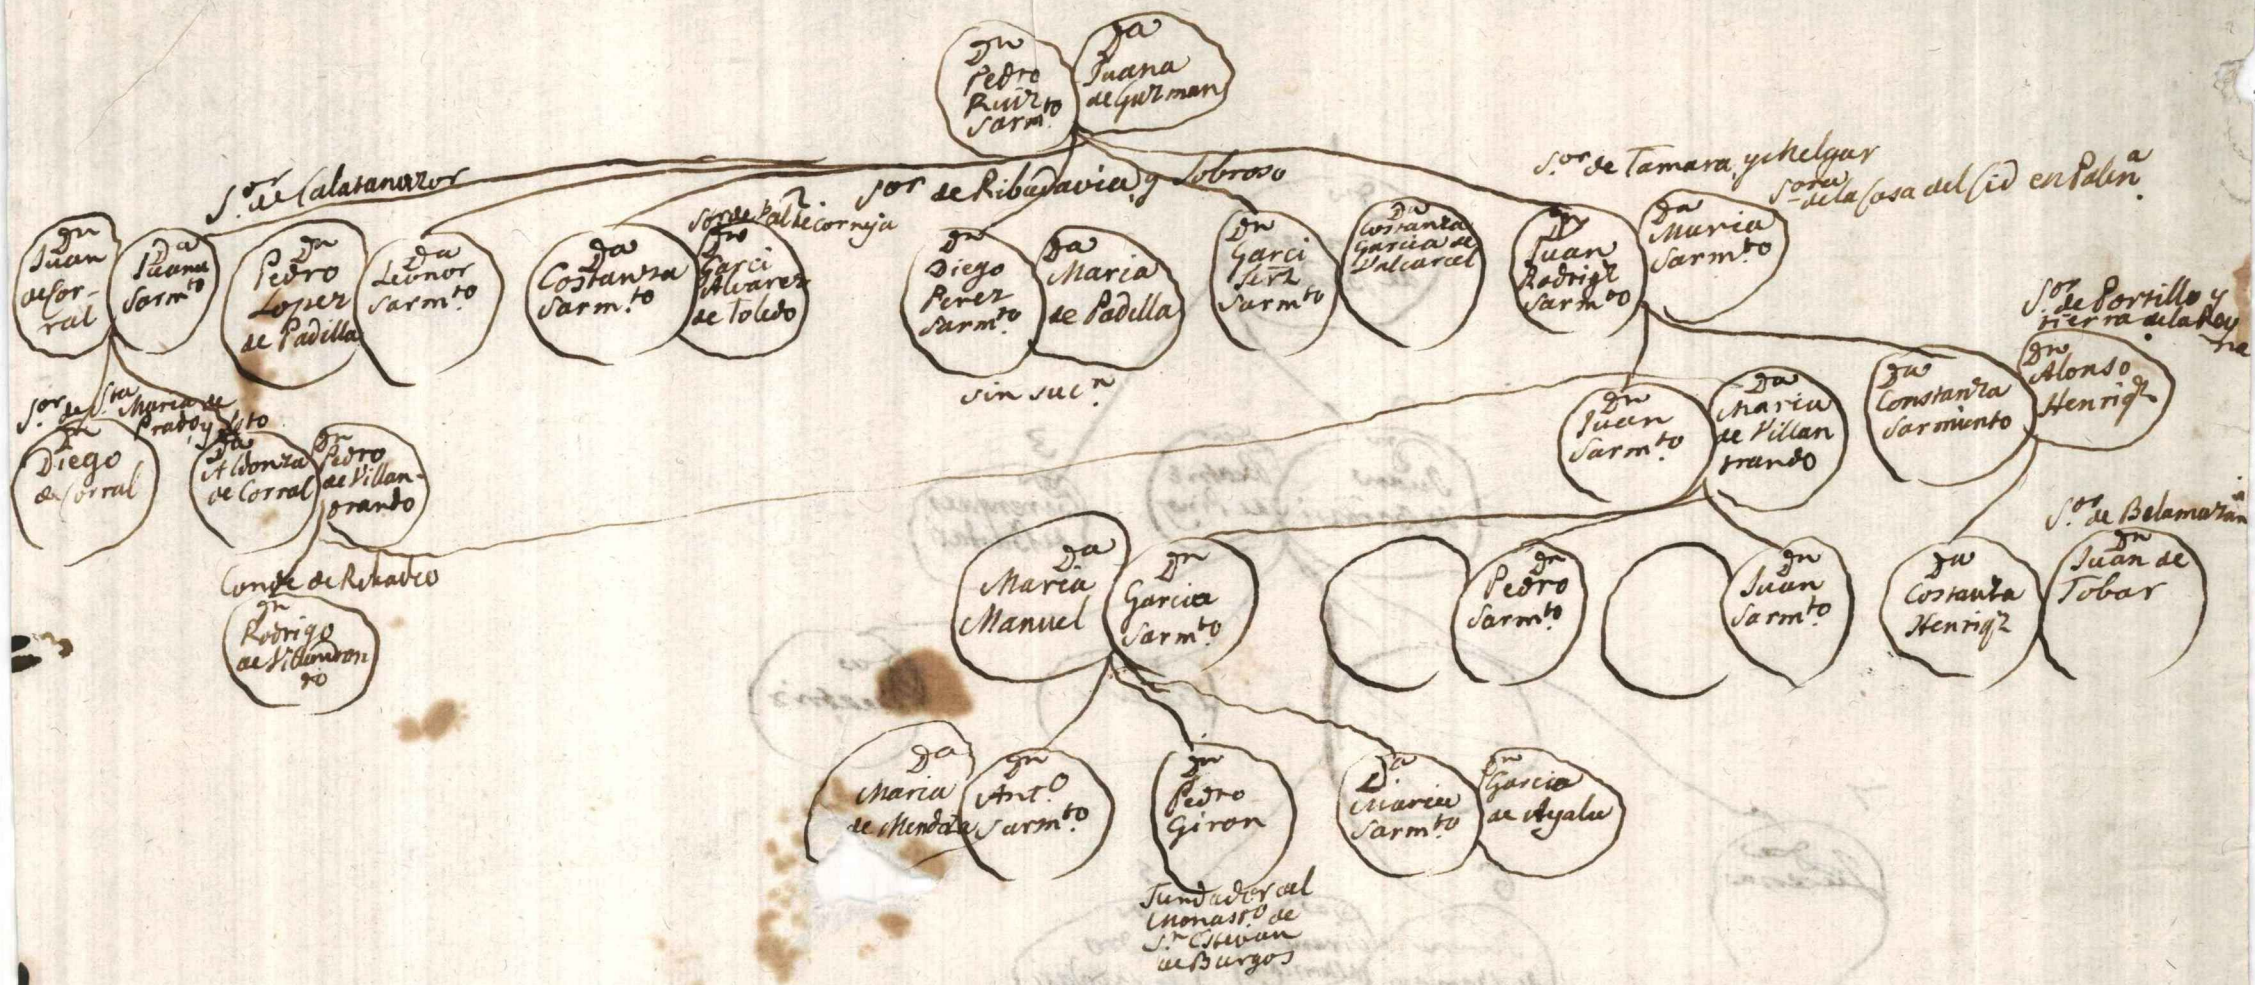 Dn
Pedro
Ruiz
Sarmto
Da
Juana
de Guzman
Sor de Calatanazor
Sor de Valdecorneja
Sor de Ribadavia, y Sobroso
Sor de Tamara, y Melgar
Sora de la Casa del Cid en Palena
Dn
Juan
de Cor-
ral
Da
Juana
Sarmto
Dn
Pedro
Lopez
de Padilla
Da
Leonor
Sarmto
Da
Costanza
Sarmto
Dn
Garci
Alvarez
de Toledo
Dn
Diego
Perez
Sarmto
Da
Maria
de Padilla
sin sucn
Dn
Garci
Frz
Sarmto
Da
Costanza
Garcia de
Valcarcel
Dn
Juan
Rodrigz
Sarmto
Da
Maria
Sarmto
Sor de Portillo y
tierra de la Rey
na
Sor de Sta
Maria de
Prado, y
Dn
Diego
de Corral
Da
Aldonza
de Corral
Dn
Pedro
de Villan-
drando
Dn
Juan
Sarmto
Da
Maria
de Villan
drando
Da
Constanza
Sarmiento
Dn
Alonso
Henriqz
Conde de Ribadeo
Dn
Rodrigo
de Villandran
do
Da
Maria
Manuel
Dn
Garcia
Sarmto
Dn
Pedro
Sarmto
Dn
Juan
Sarmto
Da
Costanza
Henriqz
Sor de Belamazan
Dn
Juan de
Tobar
Da
Maria
de Mendoza
Dn
Anto
Sarmto
Dn
Pedro
Giron
Da
Maria
Sarmto
Dn
Garcia
de Ayala
Fundador del
Monasto de
Sn Estevan
de Burgos